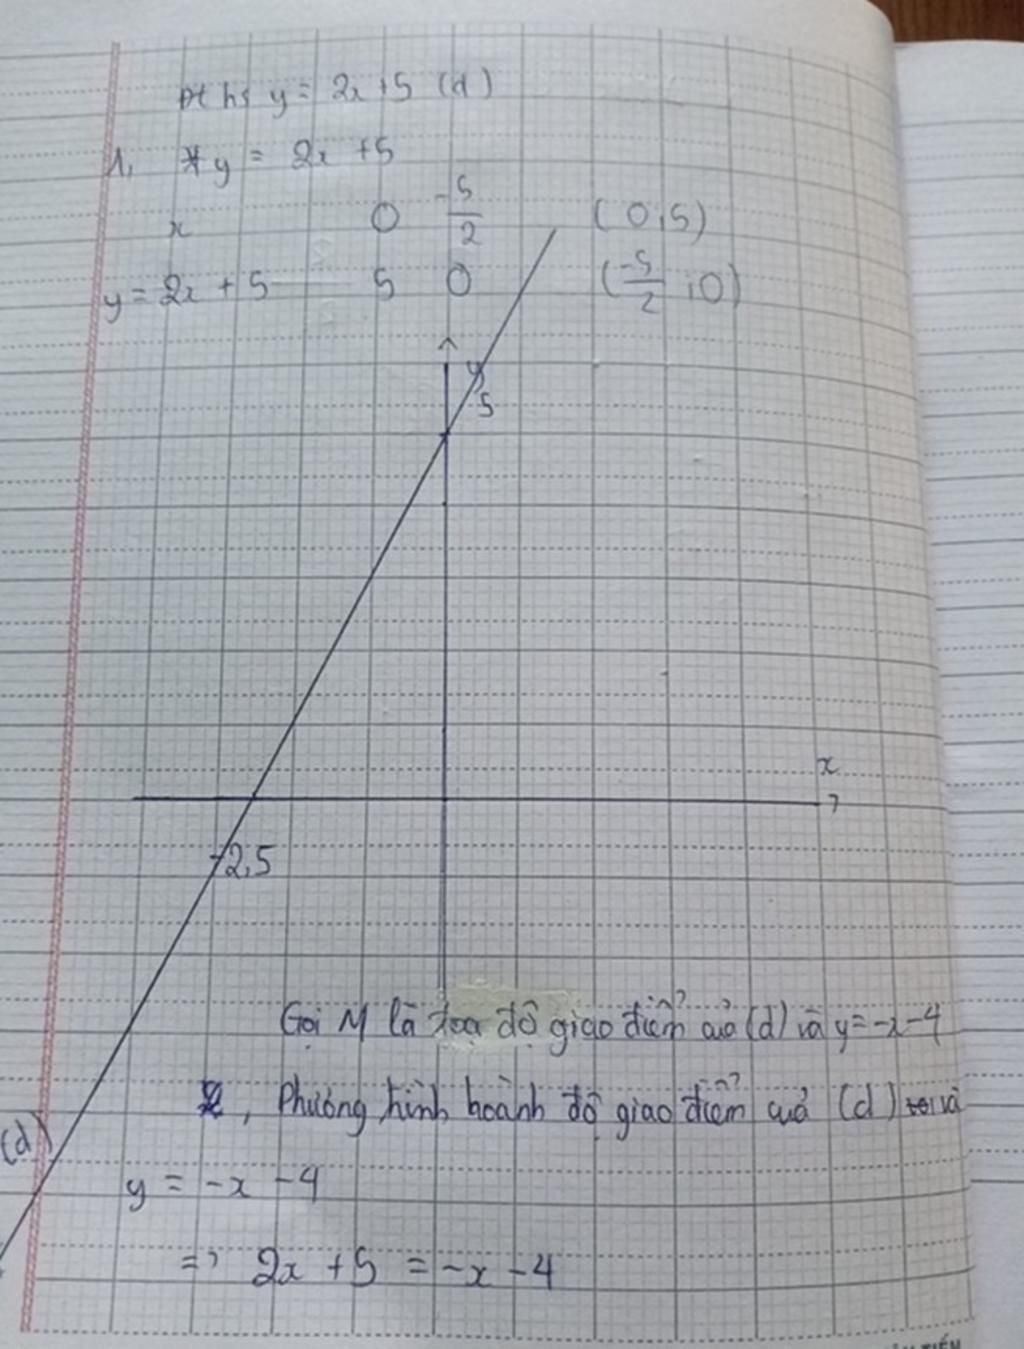 pt hs y = 2x + 5 (d)
1, * y = 2x + 5
x 0 -5/2 (0;5)
y = 2x + 5 5 0 (-5/2;0)
y
5
x
-2,5
Gọi M là tọa độ giao điểm của (d) và y = -x - 4
, Phương hình hoành độ giao điểm của (d) và
(d)
y = -x - 4
=> 2x + 5 = -x - 4